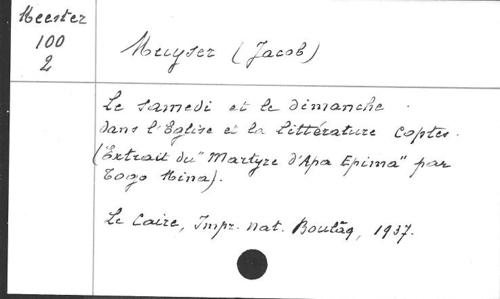 Meester
100
2
Muyser (Jacob)
Le samedi et le dimanche
dans l'Eglise et la littérature coptes.
("Extrait du "Martyre d'Apa Epima" par
Togo Mina).
Le Caire, Impr. nat. Boulâq, 1937.